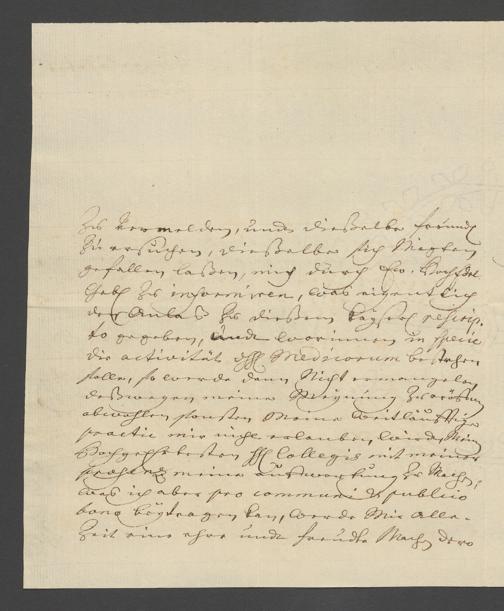 Zu vermelden, und dieselbe freundl
Zu ersuchen, dieselbe sich Mögten
gefallen laßen, mich durch Ew. HochEdel
gebl zu informiren, was eigentlich
der Anlaß zu diesem Kayserl rescrip-
to gegeben, undt worinnen in specie
die activität Medicorum bestehen
solle, so werde dann Nicht ermangeln
deßwegen meine Meynung Zu
abwohlen sonsten Meine weitläufftige
practic mir nicht erlauben,
Collegio mit meiner
meine aufwartung zu Machen,
was ich aber pro communi & publico
bono beytragen kan, werde Mir alle-
Zeit eine ehre undt freude Machen dero